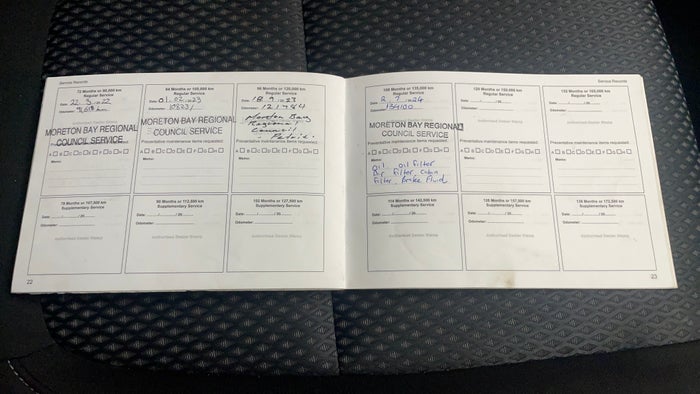 Service Records
72 Months or 90,000 km
Regular Service
Date: 22 3 2022
Odometer:
Authorised Dealer Stamp
MORETON BAY REGIONAL
COUNCIL SERVICE
Preventative maintenance items requested:
A B C D E F G H
Memo:
84 Months or 105,000 km
Regular Service
Date: 01 02 2023
Odometer: 105231
MORETON BAY REGIONAL
COUNCIL SERVICE
Preventative maintenance items requested:
A B C D E F G H
Memo:
96 Months or 120,000 km
Regular Service
Date: 18 9 2023
Odometer: 121784
Moreton Bay
Regional
Council
Petrie.
Preventative maintenance items requested:
A B C D E F G H
Memo:
78 Months or 97,500 km
Supplementary Service
Date: / / 20
Odometer:
Authorised Dealer Stamp
90 Months or 112,500 km
Supplementary Service
Date: / / 20
Odometer:
Authorised Dealer Stamp
102 Months or 127,500 km
Supplementary Service
Date: / / 20
Odometer:
Authorised Dealer Stamp
22
Service Records
108 Months or 135,000 km
Regular Service
Date: 2 7 2024
Odometer: 134100
MORETON BAY REGIONAL
COUNCIL SERVICE
Preventative maintenance items requested:
A B C D E F G H
Memo:
Oil. oil filter
Air filter, Cabin
filter, Brake Fluid
120 Months or 150,000 km
Regular Service
Date: / / 20
Odometer:
Authorised Dealer Stamp
Preventative maintenance items requested:
A B C D E F G H
Memo:
132 Months or 165,000 km
Regular Service
Date: / / 20
Odometer:
Authorised Dealer Stamp
Preventative maintenance items requested:
A B C D E F G H
Memo:
114 Months or 142,500 km
Supplementary Service
Date: / / 20
Odometer:
Authorised Dealer Stamp
126 Months or 157,500 km
Supplementary Service
Date: / / 20
Odometer:
Authorised Dealer Stamp
138 Months or 172,500 km
Supplementary Service
Date: / / 20
Odometer:
Authorised Dealer Stamp
23